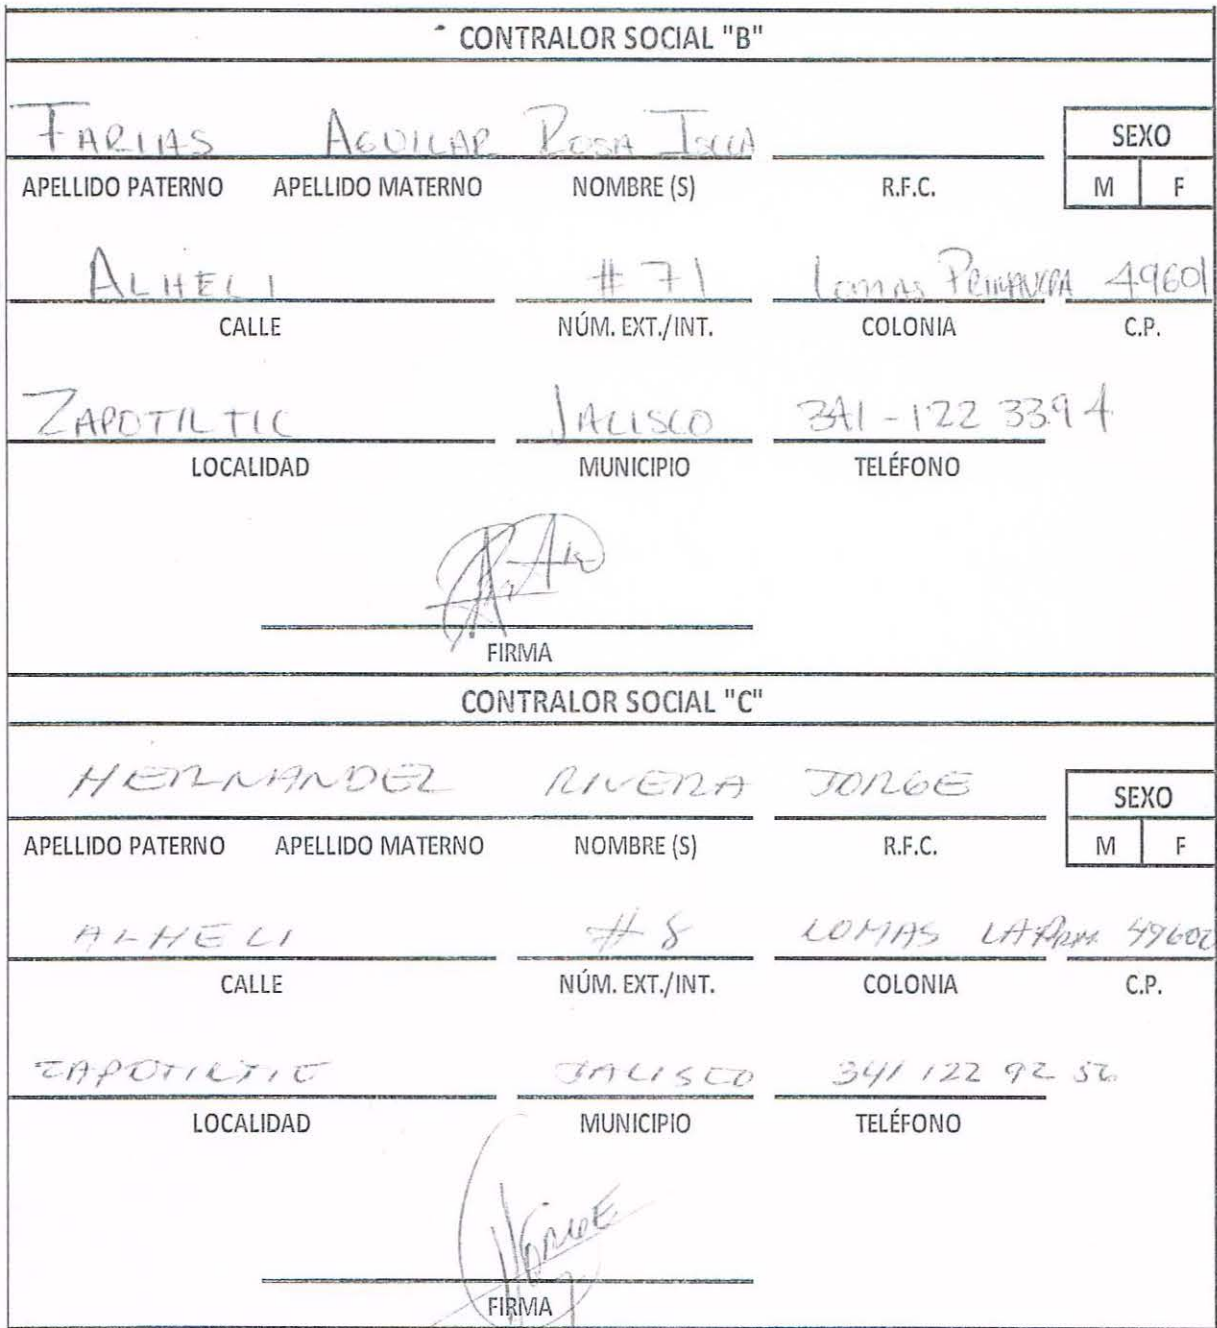 CONTRALOR SOCIAL "B"
FARIAS AGUILAR ROSA ISELA
SEXO
APELLIDO PATERNO APELLIDO MATERNO NOMBRE (S) R.F.C. M F
ALHELI #71 LOMAS PRIMAVERA 49601
CALLE NÚM. EXT./INT. COLONIA C.P.
ZAPOTILTIC JALISCO 341-122 3394
LOCALIDAD MUNICIPIO TELÉFONO
FIRMA
CONTRALOR SOCIAL "C"
HERNANDEZ RIVERA JORGE
SEXO
APELLIDO PATERNO APELLIDO MATERNO NOMBRE (S) R.F.C. M F
ALHELI #8 LOMAS
CALLE NÚM. EXT./INT. COLONIA C.P.
ZAPOTILTIC JALISCO 341 122 92
LOCALIDAD MUNICIPIO TELÉFONO
FIRMA